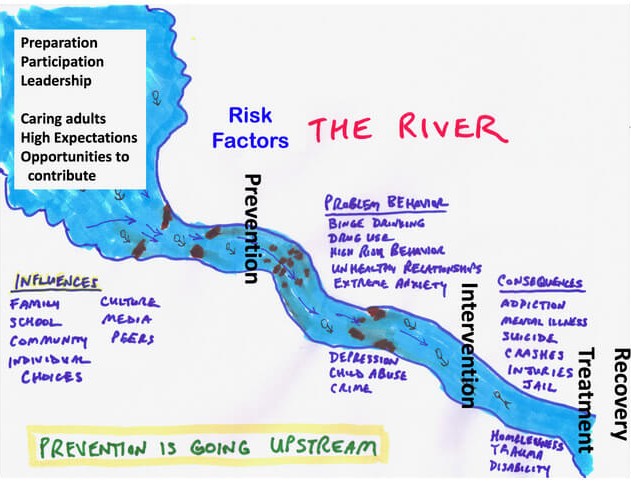 Preparation
Participation
Leadership
Caring adults
High Expectations
Opportunities to
contribute
Risk
Factors
THE RIVER
Prevention
PROBLEM BEHAVIOR
BINGE DRINKING
DRUG USE
HIGH RISK BEHAVIOR
UNHEALTHY RELATIONSHIPS
EXTREME ANXIETY
INFLUENCES
FAMILY
SCHOOL
COMMUNITY
INDIVIDUAL
CHOICES
CULTURE
MEDIA
PEERS
DEPRESSION
CHILD ABUSE
CRIME
Intervention
CONSEQUENCES
ADDICTION
MENTAL ILLNESS
SUICIDE
CRASHES
INJURIES
JAIL
HOMELESSNESS
TRAUMA
DISABILITY
Treatment
Recovery
PREVENTION IS GOING UPSTREAM